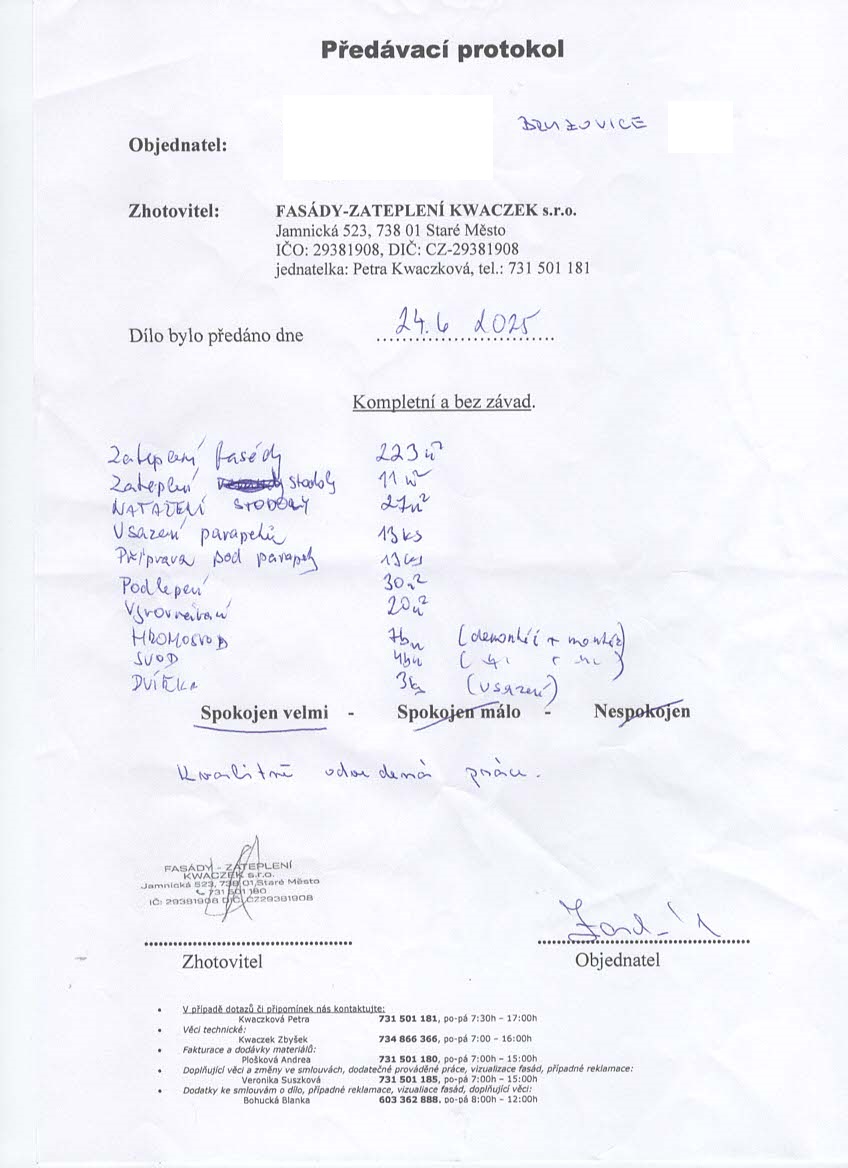 Předávací protokol
BRUZOVICE
Objednatel:
Zhotovitel: FASÁDY-ZATEPLENÍ KWACZEK s.r.o.
Jamnická 523, 738 01 Staré Město
IČO: 29381908, DIČ: CZ-29381908
jednatelka: Petra Kwaczková, tel.: 731 501 181
Dílo bylo předáno dne 24.6 2025
Kompletní a bez závad.
Zateplení fasády 223 m²
Zateplení stodoly 11 m²
NATAŽENÍ STODOLY 27m²
Usazení parapetů 13ks
Příprava pod parapety 13ks
Podlepení 30m²
Vyrovnávání 20m²
HROMOSVOD (demontáž + montáž)
SVOD
DVÍŘKA (usazení)
Spokojen velmi - Spokojen málo - Nespokojen
Kvalitně odvedená práce.
FASÁDY - ZATEPLENÍ
KWACZEK s.r.o.
Jamnická 523, 738 01, Staré Město
731 501 180
IČ: 29381908 DIČ: CZ29381908
Zhotovitel
Objednatel
• V případě dotazů či připomínek nás kontaktujte:
Kwaczková Petra 731 501 181, po-pá 7:30h – 17:00h
• Věci technické:
Kwaczek Zbyšek 734 866 366, po-pá 7:00 – 16:00h
• Fakturace a dodávky materiálů:
Plošková Andrea 731 501 180, po-pá 7:00h – 15:00h
• Doplňující věci a změny ve smlouvách, dodatečné prováděné práce, vizualizace fasád, případné reklamace:
Veronika Suszková 731 501 185, po-pá 7:00h – 15:00h
• Dodatky ke smlouvám o dílo, případné reklamace, vizualiace fasád, doplňující věci:
Bohucká Blanka 603 362 888, po-pá 8:00h – 12:00h